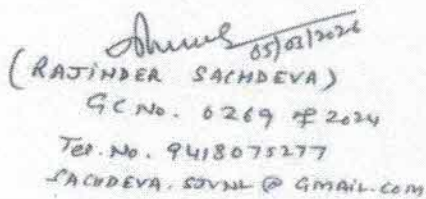 05/03/2026
(RAJINDER SACHDEVA)
GC No. 0269 of 2024
Tel. No. 9418075277
SACHDEVA.SJVNL@GMAIL.COM